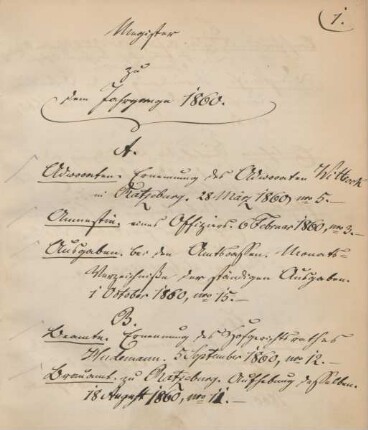 1.
Register
zu
dem Jahrgange 1860.
A.
Advocaten. Ernennung des Advocaten Witterk
in Ratzeburg. 28 März 1860, no 5.—
Amnestie eines Offiziers. 6 Februar 1860, no 3.—
Ausgaben. bei den Amtscassen. Monats-
Verzeichniße der ständigen Ausgaben.
1 October 1860, no 15.—
B.
Beamte. Ernennung des Hofgerichtsrathes
Wiedemann. 5 September 1860, no 12.—
Brauamt. zu Ratzeburg. Aufhebung desselben.
18 August 1860, no 11.—